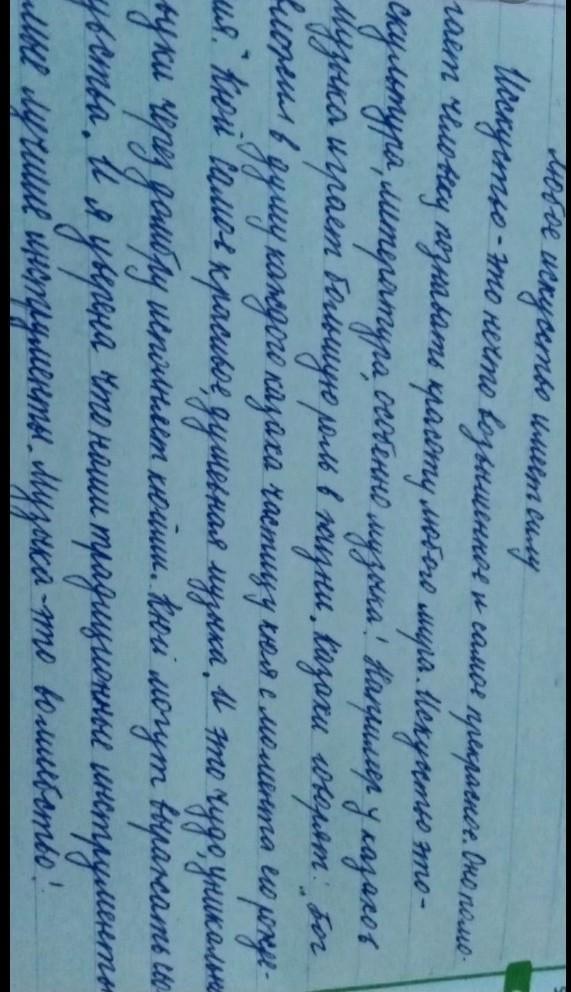 Любое искуство имеет силу
Искуство - это нечто возвышенное и самое прекрасное. Оно помо-
гает человеку познавать красоту любого мира. Искуство это -
скульптура, литература, особенно музыка! Например у казахов
музыка играет большую роль в жизни. Казахи говорят: "Бог
вложил в душу каждого казаха частицу кюя с момента его рожде-
ия". Кюй самое красивое, душевная музыка. И это чудо, уникальн
вуки через домбру исполняет кюйши. Кюй могут выражать
увства. И я уверена что наши традиционные инструменты
мые лучшие инструменты. Музыка - это волшебство!